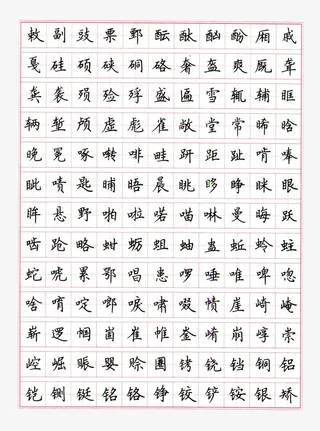 敕副豉票鄄酝酞酗酚厢戚
戛硅硕硖硐硌奢盔爽厩聋
龚袭殒殓殍盛匾雪辄辅眶
辆堑颅虚彪雀敞堂常晞晗
晚冕啄啭啡畦趼距趾啃唪
眦啧匙晡晤晨眺眵睁眯眼
眸悬野啪啦喏喵啉曼晦跃
啮跄略蚶蛎蛆蚰蛊蚯蛉蛀
蛇唬累鄂唱患啰唾唯啤唿
啥唷啶啷唳啸啜帻崖崎崦
崭逻帼崮崔帷崟崤崩崞崇
崆崛赈婴赊圈铐铙铛铜铝
铠铡铤铭铬铮铰铲铵银矫